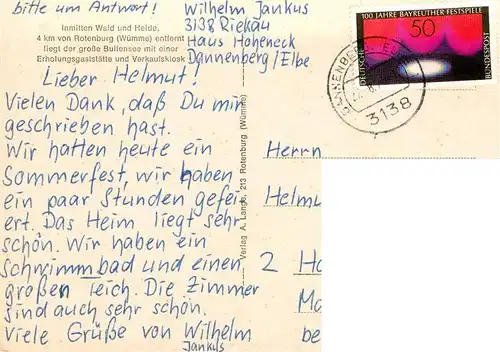 bitte um Antwort!
Wilhelm Jankus
3138 Riekau
Haus Hoheneck
Dannenberg/Elbe
Inmitten Wald und Heide,
4 km von Rotenburg (Wümme) entfernt
liegt der große Bullensee mit einer
Erholungsgaststätte und Verkaufskiosk
100 JAHRE BAYREUTHER FESTSPIELE
50
DEUTSCHE
BUNDESPOST
3138
Lieber Helmut!
Vielen Dank, daß Du mir
geschrieben hast.
Wir hatten heute ein
Sommerfest, wir haben
ein paar Stunden gefei
ert. Das Heim liegt sehr
schön. Wir haben ein
Schwimmbad und einen
großen Teich. Die Zimmer
sind auch sehr schön.
Viele Grüße von Wilhelm
Jankus
Verlag A. Lange, 213 Rotenburg (Wümme)
Herrn
Helmu
2 Ha
be